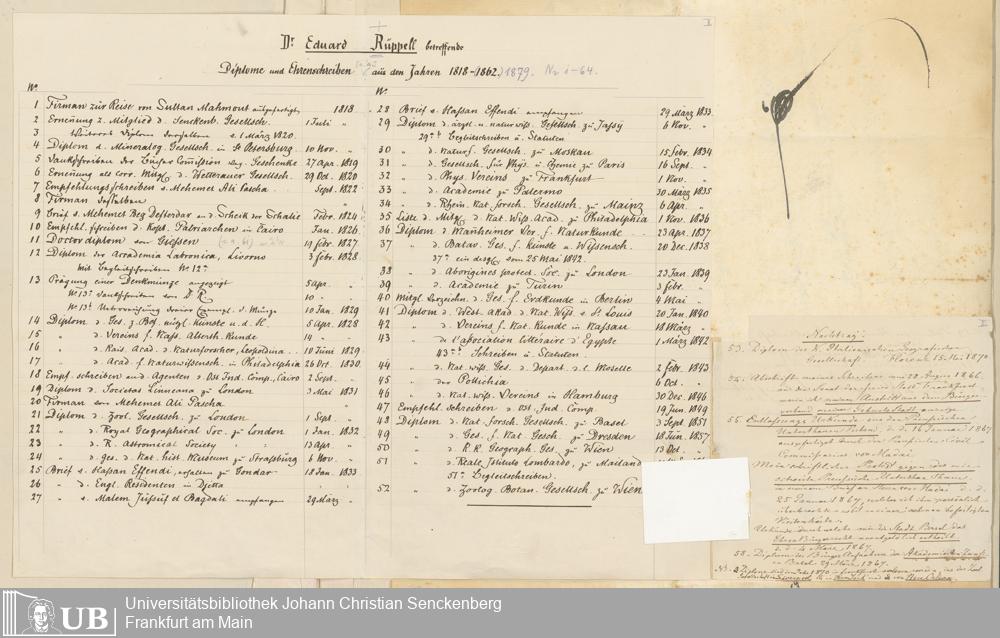 I
Dr Eduard Rüppell betreffende
Diplome und Ehrenschreiben aus den Jahren 1818-1862. 1879. Nr 1-64.
No
1 Firman zur Reise von Sultan Mahmout ausgefertigt 1818
2 Ernennung z. Mitglied d. Senckenb. Gesellsch. 1 Juli "
3 Diplom s. 1 März 1820.
4 Diplom d. Mineralog. Gesellsch. in St Petersburg 10 Nov. "
5 Dankschreiben der Commission weg. Geschenke 27 Apr. 1819
6 Ernennung als corr. Mitgl. d. Wetterauer Gesellsch. 29 Oct. 1820
7 Empfehlungsschreiben s. Mehemet Ali Pascha Sept. 1822
8 Firman desselben "
9 Brief s. Mehemet Beg Defterdar an d. Scheik der Schakie Febr. 1824
10 Empfehl. schreiben d. Kopt. Patriarchen in Cairo Jan. 1826.
11 Doctordiplom von Giessen 19 Febr. 1827
12 Diplom der Accademia Labronica, Livorno 3 Febr. 1828
mit Begleitschreiben No 12a
13 Prägung einer Denkmünze angezeigt 5 Apr. "
No 13a Dankschreiben von D. R. 10 " "
No 13b d. Münze 10 Jan. 1829
14 Diplom d. Ges. z. Bef. nützl. Künste u. d. H. 5 Apr. 1828
15 " d. Vereins f. Nass. Alterth. Kunde 14 " "
16 " d. Kais. Acad. d. Naturforscher, Leopoldina 10 Juni 1829
17 " d. Acad. f. Naturwissensch. in Philadelphia 26 Oct. 1830.
18 Empf. schreiben and. Agenten d. Ost Ind. Comp., Cairo 2 Sept. "
19 Diplom d. Societas Linneana zu London 3 Mai 1831
20 Firman von Mehemet Ali Pascha
21 Diplom d. Zool. Gesellsch. zu London 1 Sept "
22 " d. Royal Geographical Soc. zu London 1 Jan. 1832
23 " d. R. Astromical Society " 13 Apr. "
24 " d. Ges. d. Nat. hist. Museum zu Strassburg 6 Nov. "
25 Brief s. Hassan Effendi, erhalten zu Gondar 18 Jan. 1833
26 " d. Engl. Residenten in Djetta
27 " s. Malem Jussuf el Bagdali empfangen 29 März "
No
28 Brief s. Hassan Effendi empfangen 29 März 1833
29 Diplom d. ärztl. u. naturwiss. Gesellsch. zu Jassÿ 6 Nov. "
29a b Begleitschreiben u. Statuten
30 " d. Naturf. Gesellsch. zu Moskau 15 Febr. 1834
31 " d. Gesellsch. für Phys. u. Chemie zu Paris 16 Sept. "
32 " d. Phys. Vereins zu Frankfurt 1 Nov. "
33 " d. Academie zu Palermo 30 März 1835
34 " d. Rhein. Nat. forsch. Gesellsch. zu Mainz 6 Apr. "
35 Liste d. Mitgl. d. Nat. Wiss. Acad. zu Philadelphia 1 Nov. 1836
36 Diplom d. Mannheimer Ver. f. Naturkunde 23 Apr. 1837
37 " d. Batav. Ges. f. Künste u. Wissensch. 20 Dec. 1838
37a ein desgl. vom 25 Mai 1842.
38 " d. Aborigines protect. Soc. zu London 23 Jan. 1839
39 " d. Academie zu Turin 3 Febr. "
40 Mitgl. Verzeichn. d. Ges. f. Erdkunde in Berlin 4 Mai "
41 Diplom d. West. Akad. d. Nat. Wiss. z. St Louis 20 Jan. 1840
42 " d. Vereins f. Nat. Kunde in Nassau 18 März "
43 " de l'association litteraire d'Egypte 1 März 1842
43a b Schreiben u. Statuten.
44 " d. Nat. wiss. Ges. d. Depart. d. l. Moselle 2 Febr. 1843
45 " der Pollichia 6 Oct. "
46 " d. Nat. wiss. Vereins in Hamburg 30 Dec. 1846
47 Empfehl. schreiben d. Ost. Ind. Comp. 19 Jun. 1849
48 Diplom d. Nat. forsch. Gesellsch. zu Basel 3 Sept 1851
49 " d. Ges. f. Nat. Gesch. zu Dresden 18 Jun. 1857
50 " d. K. K. Geograph. Ges. zu Wien 13 Oct. "
51 " d. Reale Istituto Lombardo, zu Mailand
51a Begleitschreiben.
52 " d. Zoolog. Botan. Gesellsch. zu Wien
I
Nachtrag:
53. Diplom der K. Italienischen Geografischen
Gesellschaft. Florenz 15 Mai 1870
54. Abschrift meines Schreibens vom 22 August 1866
an den Senat der freien Stadt Frankfurt
55. Entlassungs Urkunde aus den Preussischen
d. d. 16 Januar 1867
Commissarius von Madai.
Protest gegen
25 Januar 1867,
Stadt Basel das
Ehrenbürgerrecht ertheilt
d. d. 4 März 1867.
58. Diplom der
in Basel. 29 März 1867.
UB
Universitätsbibliothek Johann Christian Senckenberg
Frankfurt am Main